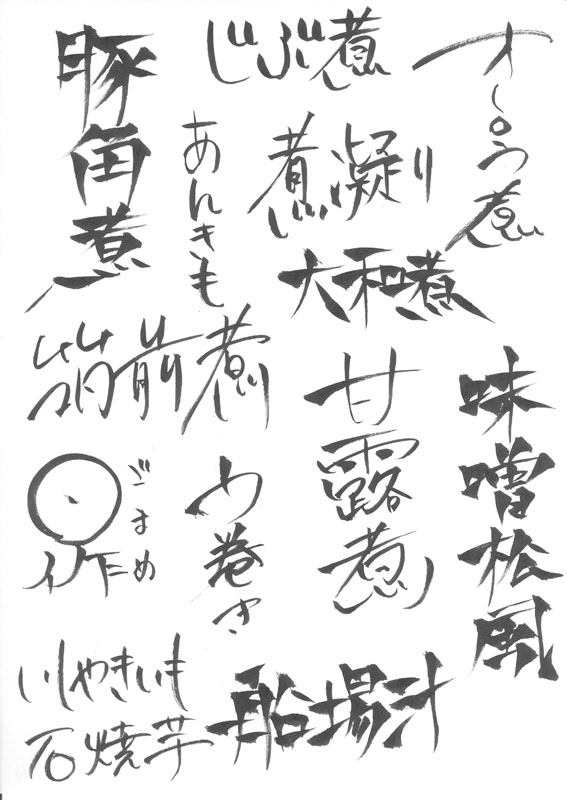 豚角煮
じぶ煮
オーロラ煮
あんきも
煮凝り
大和煮
筑前煮
甘露煮
味噌松風
ごまめ
田作
う巻き
いしやきいも
石焼芋
船場汁